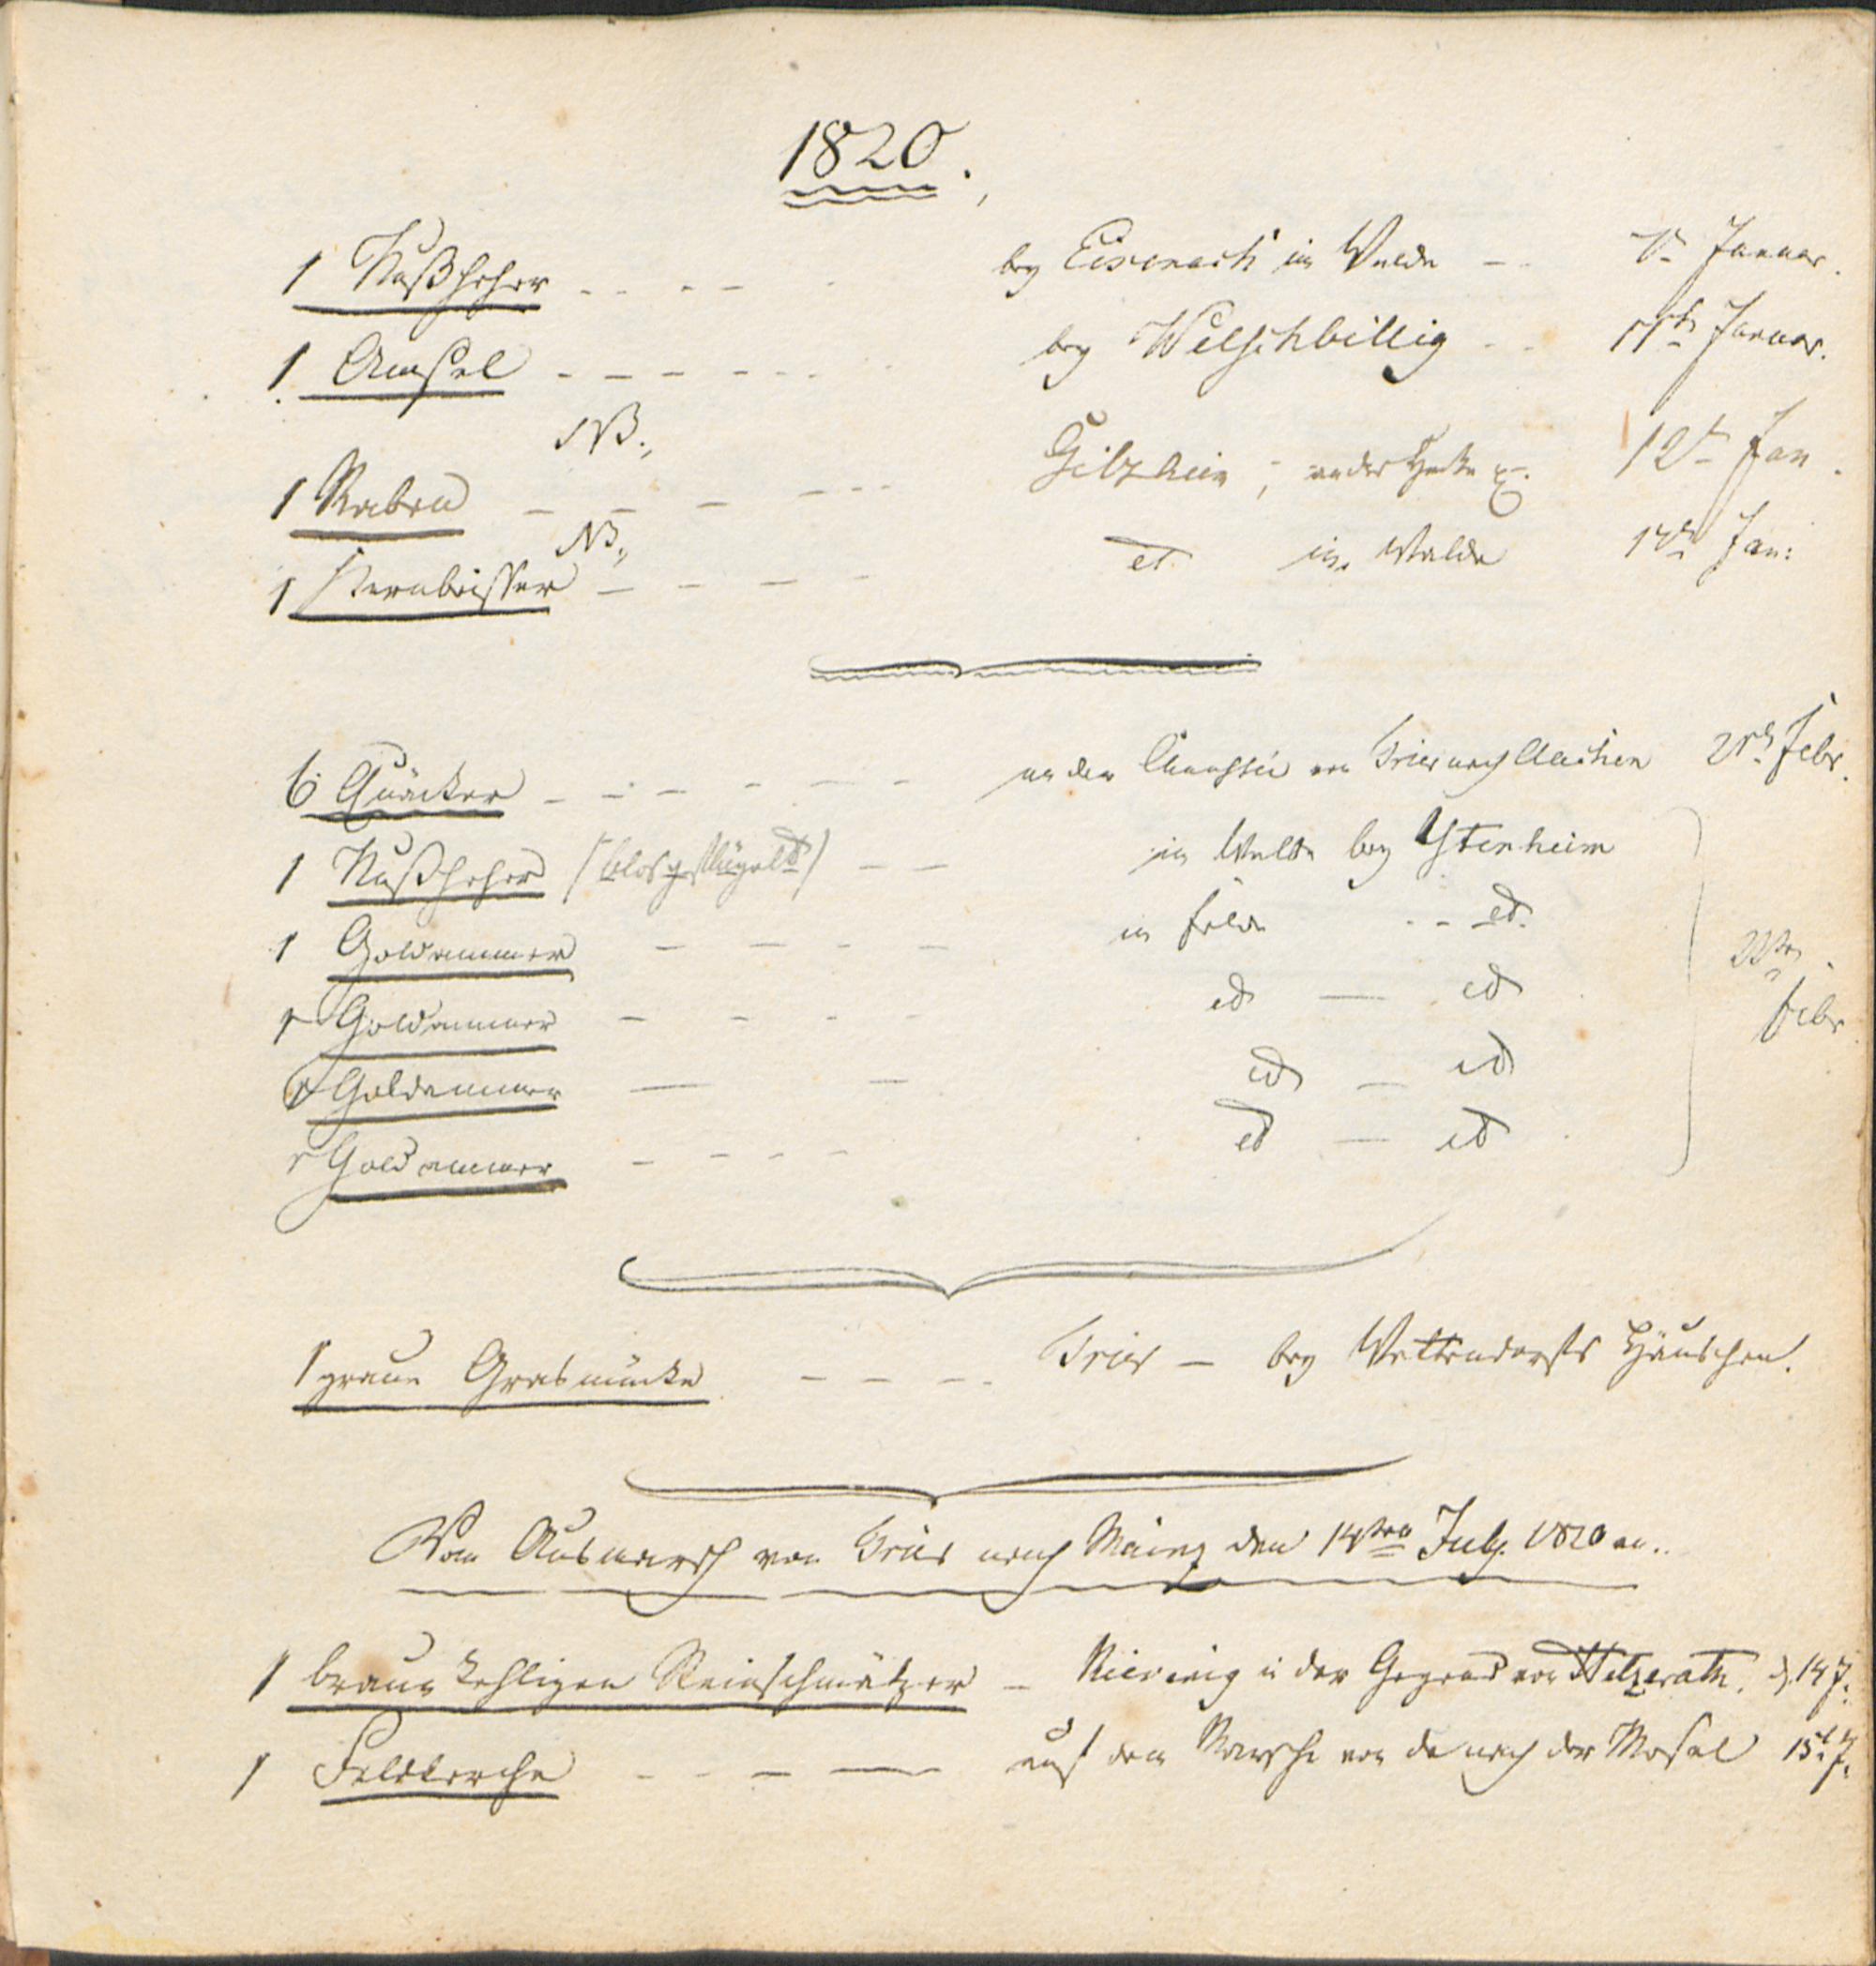 1820.
1 Nußheher - - - - bey Eisenach im Walde - - 7t Januar.
1. Amsel - - - - - - bey Welschbillig - - 11ten Januar.
NB.,
1 Raben - - - - - - Gilzheim, an der Hecke 12t Jan.
NB.,
1 Kernbeisser - - - - et im Walde 14t Jan:
6 Quäcker - - - - - - an der Chaussée von Trier nach Aachen 21t Febr.
1 Nußheher (blos geflügelt) - - im Walde bey Ystenheim
1 Goldammer - - - - im Felde - - ed.
1 Goldammer - - - - ed — ed 22ten Febr
1 Goldammer — — ed — ed
1 Goldammer - - - - ed — ed
1 graue Grasmücke - - - - Trier — bey Wettendorfs Häuschen.
Vom Ausmarsch von Trier nach Mainz den 14ten July. 1820 an..
1 braunkehligen Steinschmätzer - in der Gegend von Hetzerath. d. 14 J.
1 Feldlerche - - - — auf dem Marsche von da nach der Mosel 15t J.